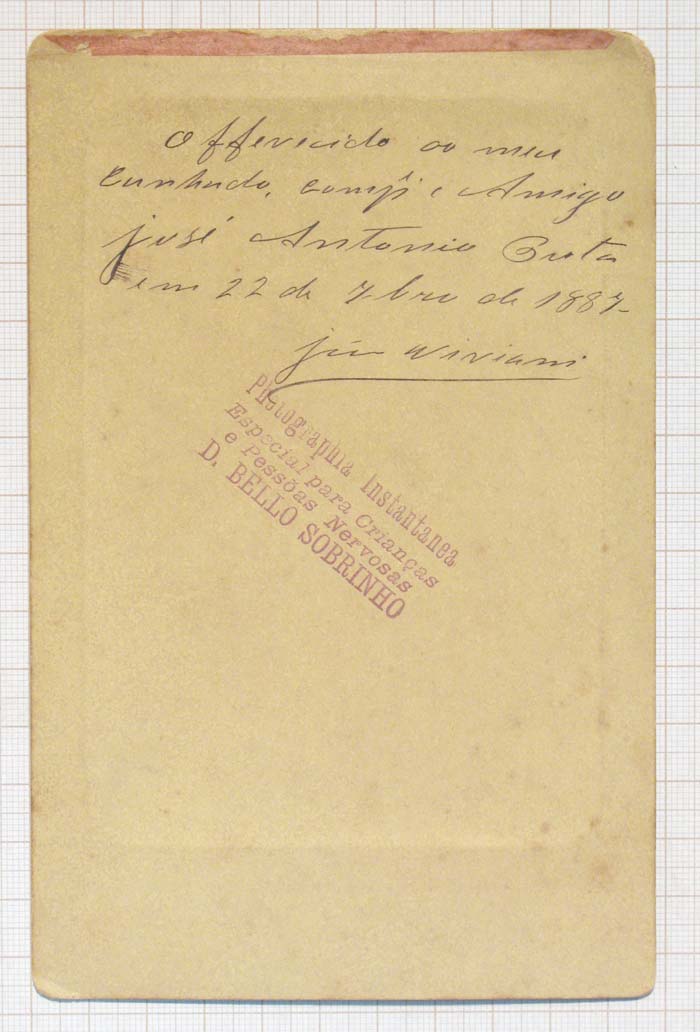 Offerecido ao meu
cunhado, comp.e e Amigo
José Antonio
em 22 de 7bro de 1887
Viviani
Photographia Instantanea
Especial para Crianças
e Pessôas Nervosas
D. BELLO SOBRINHO